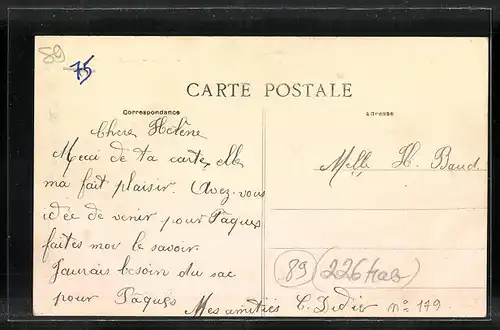 89
75
CARTE POSTALE
Correspondance
Adresse
Chère Hélène
Merci de ta carte elle
ma fait plaisir. Avez-vous
idée de venir pour Pâques
faites moi le savoir.
Jaurais besoin du sac
pour Pâques
Mes amitiés C. Didier n° 179
Melle H. Baud
89 (226